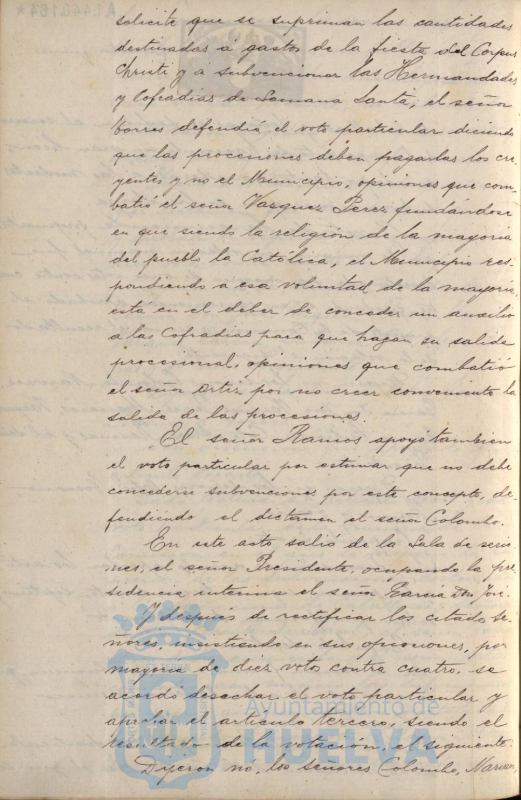 solicite que se supriman las cantidades
destinadas a gastos de la fiesta del Corpus
Christi y a subvencionar las Hermandades
y Cofradias de Semana Santa, el señor
Torres defendió el voto particular diciendo
que las procesiones deben pagarlas los cre-
yentes y no el Municipio, opiniones que com-
batió el señor Vazquez Perez fundándose
en que siendo la religión de la mayoria
del pueblo la Católica, el Municipio res-
pondiendo a esa voluntad de la mayoria,
está en el deber de conceder un auxilio
a las Cofradias para que hagan su salida
procesional, opiniones que combatió
el señor Ortiz por no creer conveniente la
salida de las procesiones.
El señor Ramos apoyó tambien
el voto particular por estimar que no debe
concederse subvenciones por este concepto, de-
fendiendo el dictamen el señor Colombo.
En este acto salió de la Sala de sesio-
nes, el señor Presidente, ocupando la pre-
sidencia interina el señor Garcia Don José.
Y después de rectificar los citados se-
ñores, insistiendo en sus opiniones, por
mayoria de diez votos contra cuatro, se
acordó desechar el voto particular y
aprobar el articulo tercero, siendo el
resultado de la votación, el siguiente:
Dijeron no, los señores Colombo,
Ayuntamiento de
HUELVA